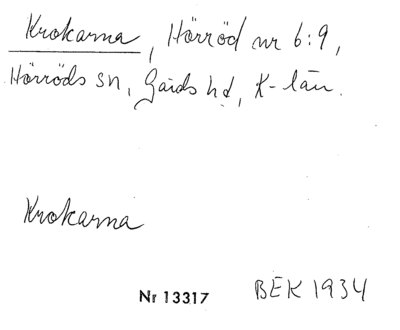 Krokarna, Hörröd nr 6:9,
Hörröds sn, Gärds hd, K-län.
Krokarna
Nr 13317 BEK 1934